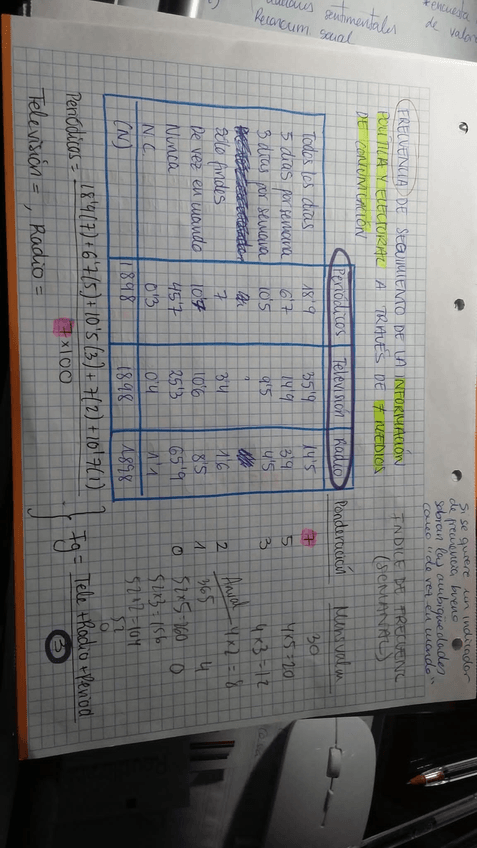 sentimentales
Recuncum social
*encuesta
de valor
FRECUENCIA DE SEGUIMIENTO DE LA INFORMACIÓN
POLÍTICA Y ELECTORAL A TRAVÉS DE 7 MEDIOS
DE COMUNICACIÓN
Si se quiere un indicador
de frecuencia, bueno
sobran las ambigüedades
como "de vez en cuando"
ÍNDICE DE FRECUENC
(SEMANAL)
Periódicos Televisión Radio Ponderación Mensualm
Todos los días 18'9 35'9 14'5 7 30
5 días por semana 6'7 14'9 3'9 5 4x5=20
3 días por semana 10'5 9'5 4'5 3 4x3=12
Sólo findes 7 3'4 1'6 2 Anual 4x2=8
De vez en cuando 10'7 10'6 8'5 1 365 4
Nunca 45'7 25'3 65'9 0 52x5=260 0
N.C. 0'3 0'4 1'1 52x3=156
(N) 1898 1898 1898 52x2=104
52
0
Periódicos = 18'9(7)+6'7(5)+10'5(3)+7(2)+10'7(1)
7x100
Ig = Tele+Radio+Periód
3
Televisión = , Radio =